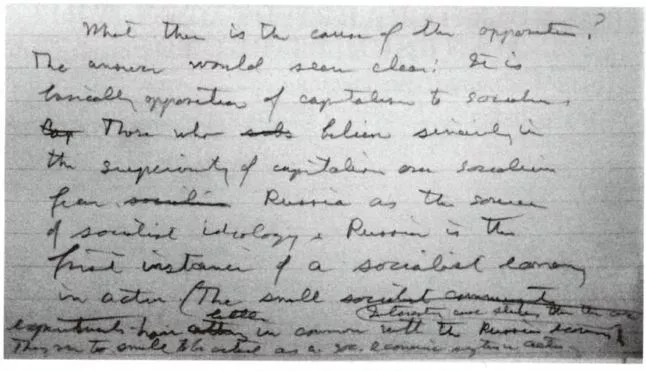 What then is the cause of the opposition?
The answer would seem clear: It is
basically opposition of capitalism to socialism.
Cap Those who subs believe sincerely in
the superiority of capitalism over socialism
fear socialism Russia as the source
of socialist ideology. Russia is the
first instance of a socialist economy
in action. (The small socialist community
little
experiments have in common with the Russian economy
They are too small to be as a economic system in action